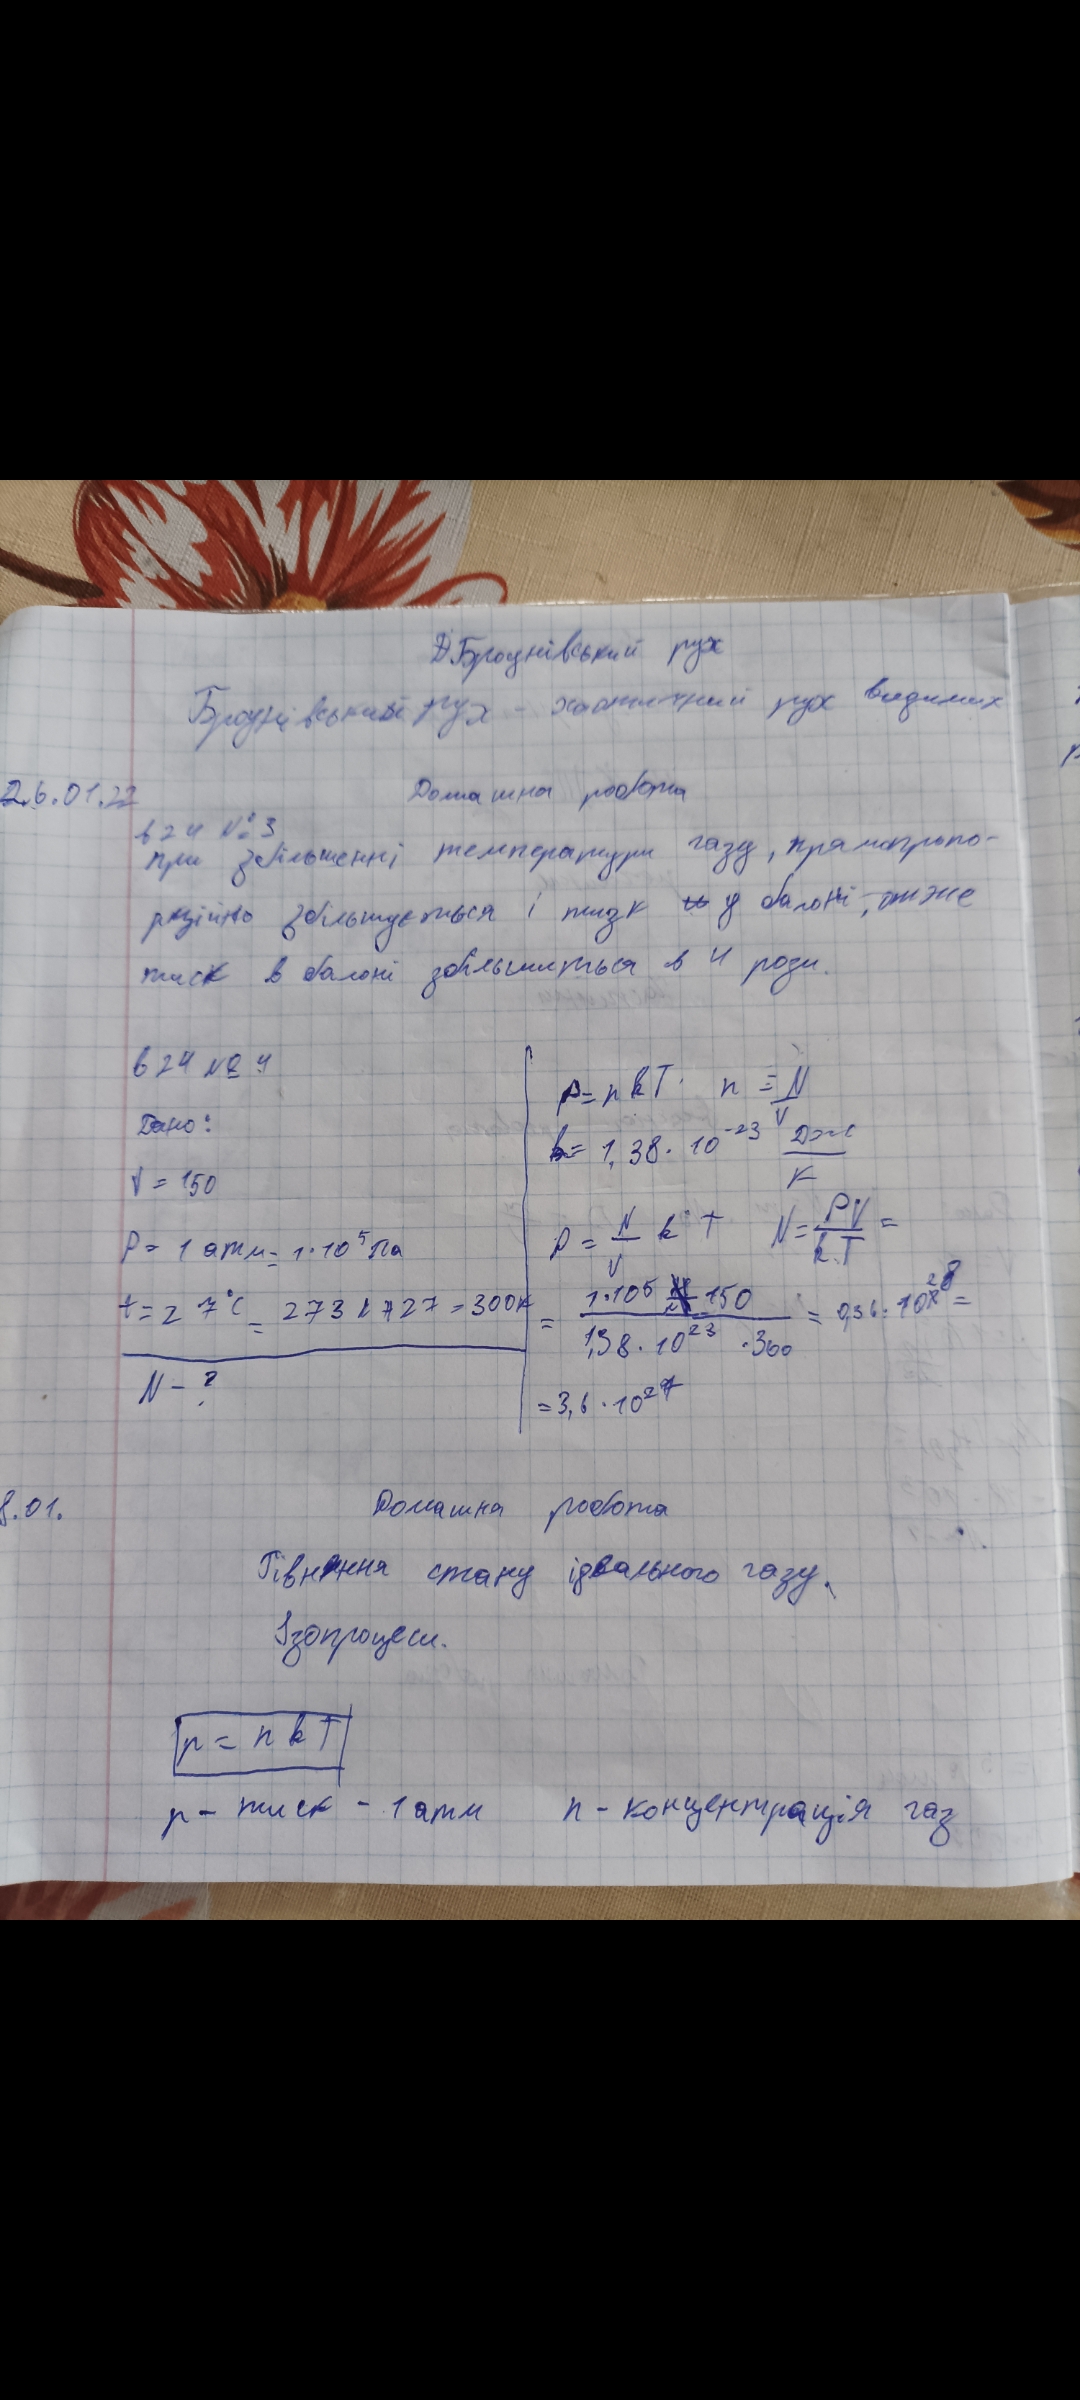 Броунівський рух
Броунівський рух - хаотичний рух видимих
26.01.22 Домашна робота
в24 №3
при збільшенні температури газу, прямопропо-
рційно збільшується і тиск у балоні, отже
тиск в балоні збільшиться в 4 рази.
в24 №4
Дано:
V = 150
P = 1 атм = 1·10⁵ Па
t = 27°C = 273 + 27 = 300K
N - ?
P = nkT. n = N/V
k = 1,38 · 10⁻²³ Дж/К
P = N/V k T N = PV/k.T =
= 1·10⁵ · 150 / 1,38 · 10²³ · 300 = 0,36 · 10²⁸ =
= 3,6 · 10²⁷
8.01. Домашна робота
Рівняння стану ідеального газу.
Ізопроцеси.
p = nkT
p - тиск - 1 атм n - концентрація газ